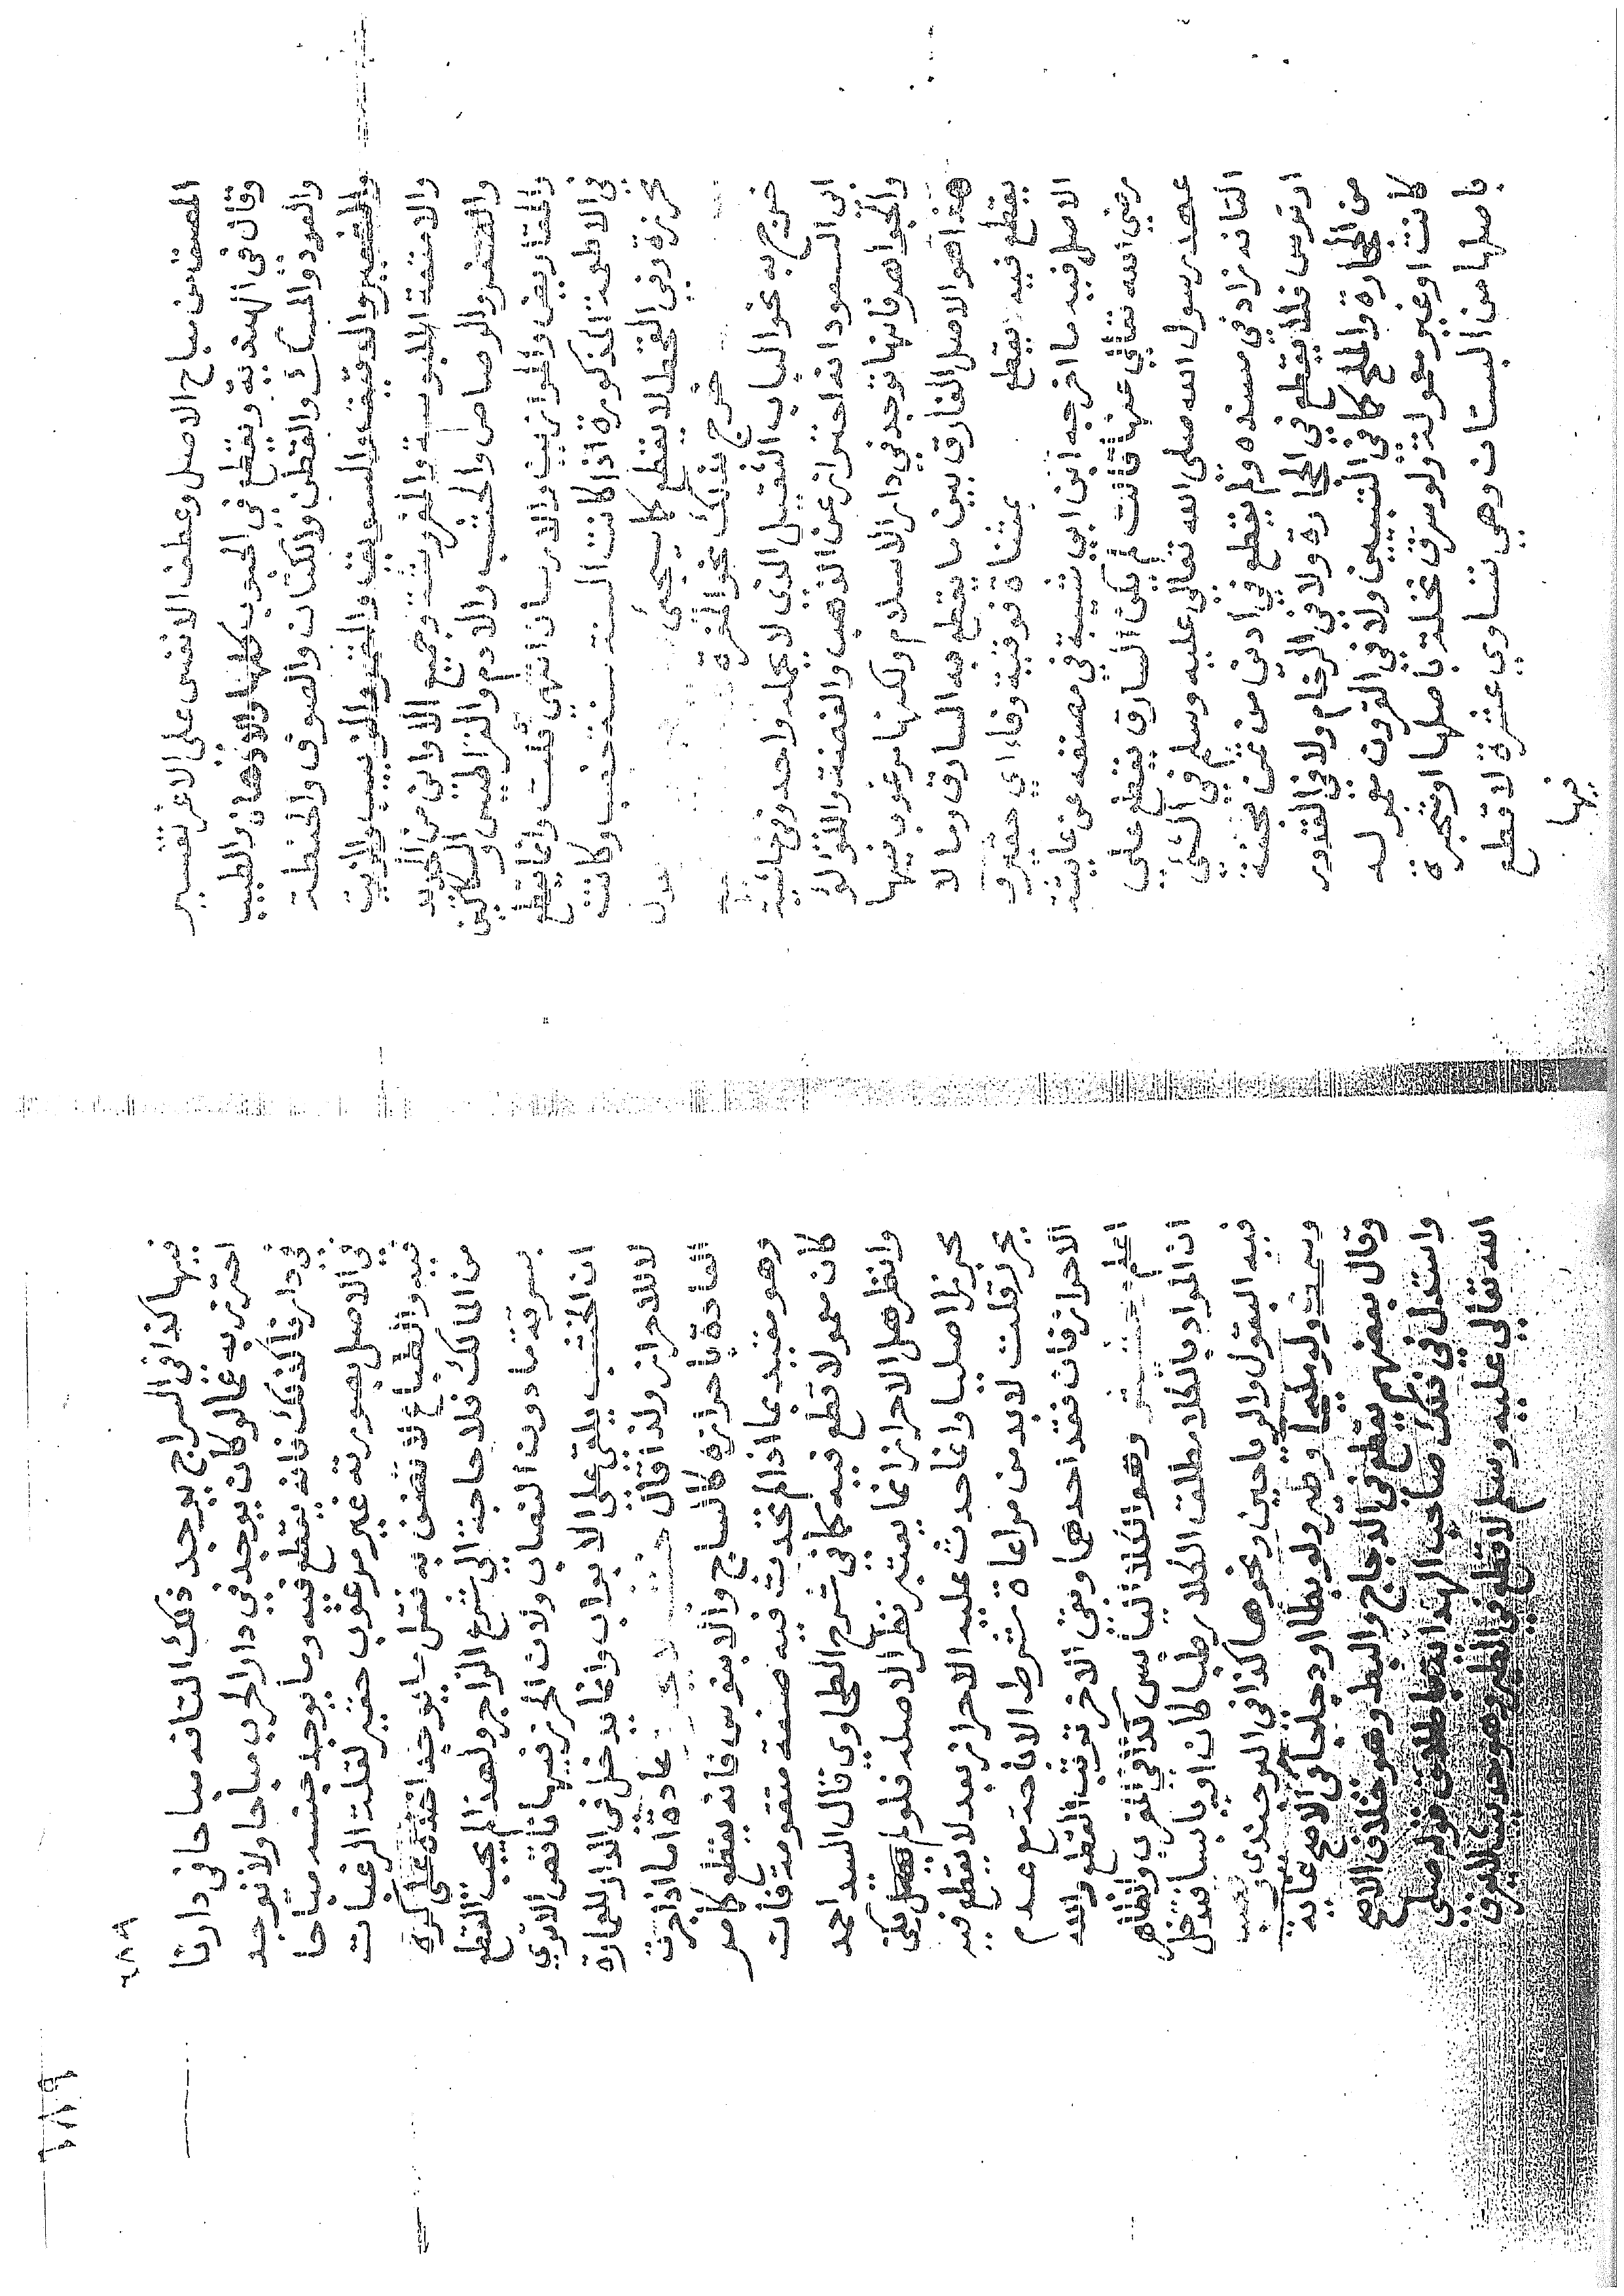 المعتقد بن مباح الاصل وعطف الاغنى على الاعم تفسير
وقال فى الهنديه ويقطع فى الحبوب كلها والادهان والطيب
والعود والمسك والقطن والكتان والصوف والحنطة
والشعير والدقيق والسويق والتمر والزبيب والزيت
والامتعة الملبوسة والمفروشة وجميع الاوانى من الحديد
والصفر والرصاص والخشب والادم والقراطيس والسكاكين
والمقاريض والموازين والارسان انتهى قلت وانما يقطع
فى الاطعمة المذكورة اذا كانت السنة سنة خصب وكانت
محرزة وفى القحط لا يقطع كما سيجئ
خرج بذلك نحو المغرة
خرج به نحو الباب الثقيل الذى لا يحمله واحد وفى حاشية
ابى السعود انه احتراز عن الذهب والفضة واللؤلؤ
والجواهر فانها توجد فى دار الاسلام ولكنها مرغوب فيها
هذا هو الاصل الفارق بين ما يقطع به السارق وما لا
يقطع فيه يقطع بمثناة فوقية وفاء اي حقير
الاصل فيه ما اخرجه ابن ابي شيبة في مصنفه عن عايشة
رضي الله تعالى عنها قالت لم يكن السارق يقطع على
عهد رسول الله صلى الله تعالى عليه وسلم فى الشئ
التافه زاد في مسنده ولم يقطع في أدنى من ثمن مجنة
او ترس فلا يقطع في الحجارة ولا فى الرخام ولا فى القدور
من الحجارة والملح كافى التبيين ولا فى القرون معموله
كانت او غير معمولة ولو سرق نخلة باصلها او شجرة
باصلها من البستان وهي تساوي عشرة لا قطع
فيها
٢٨٩
فيها كذا فى السراج يوجد ذلك التافه مباحا فى دارنا
احترز به عما لو كان يوجد في دار الحرب مباحا ولا توجد
في دارنا كذلك فانه يقطع فيه وما يوجد جنسه مباحا
فى الاصل بصورته غير مرغوب حقير لقلة الرغبات
فيه والطباع لا تضن به فقل ما يوجد اخذه على كره
من المالك فلا حاجة الى شرع الزاجر ولهذا لم يجب القطع
بسرقة ما دون النصاب ولان الحرز فيها ناقص الا ترى
ان الخشب يلقى على الابواب وانما يدخل فى الدار للعمارة
لا للاحراز ولذا قال عادة اما اذا جرت
العادة باحرازه كالساج والابنوس فانه يقطع كما مر
وهو مقيد بما اذا لم تحدث فيه صنعة متقومة فان
كان معمولا قطع فيه كما فى شرح الطحاوي قال السيد احمد
وانظر هل الاحراز انما يعتبر نظر الاصله فلو لم يكن
محرزا اصليا وانما حدث عليه الاحراز بعد لا يقطع فيه
يحرر قلت لابد من مراعاة شرط الاباحة مع عدم
الاحراز فان فقد احدهما وبقى الاخر ترتب القطع والله
اعلم وهو الكلأ اليابس كذا في المغرب والظاهر
ان المراد بالكلأ مطلق الكلأ رطبا كان او يابسا فدخل
فيه البقول والرياحين ونحوها كذا فى البرجندي
وسمك ولو مليحا وطير ولو بطا او دجاجا فى الاصح غايه
وقال بعضهم يقطع فى الدجاج والبط وهو خلاف الاصح
واستدل في ذلك صاحب الهدايه باطلاق قوله صلى
الله تعالى عليه وسلم لا قطع فى الطير وهو حديث الترق
٢٨٩